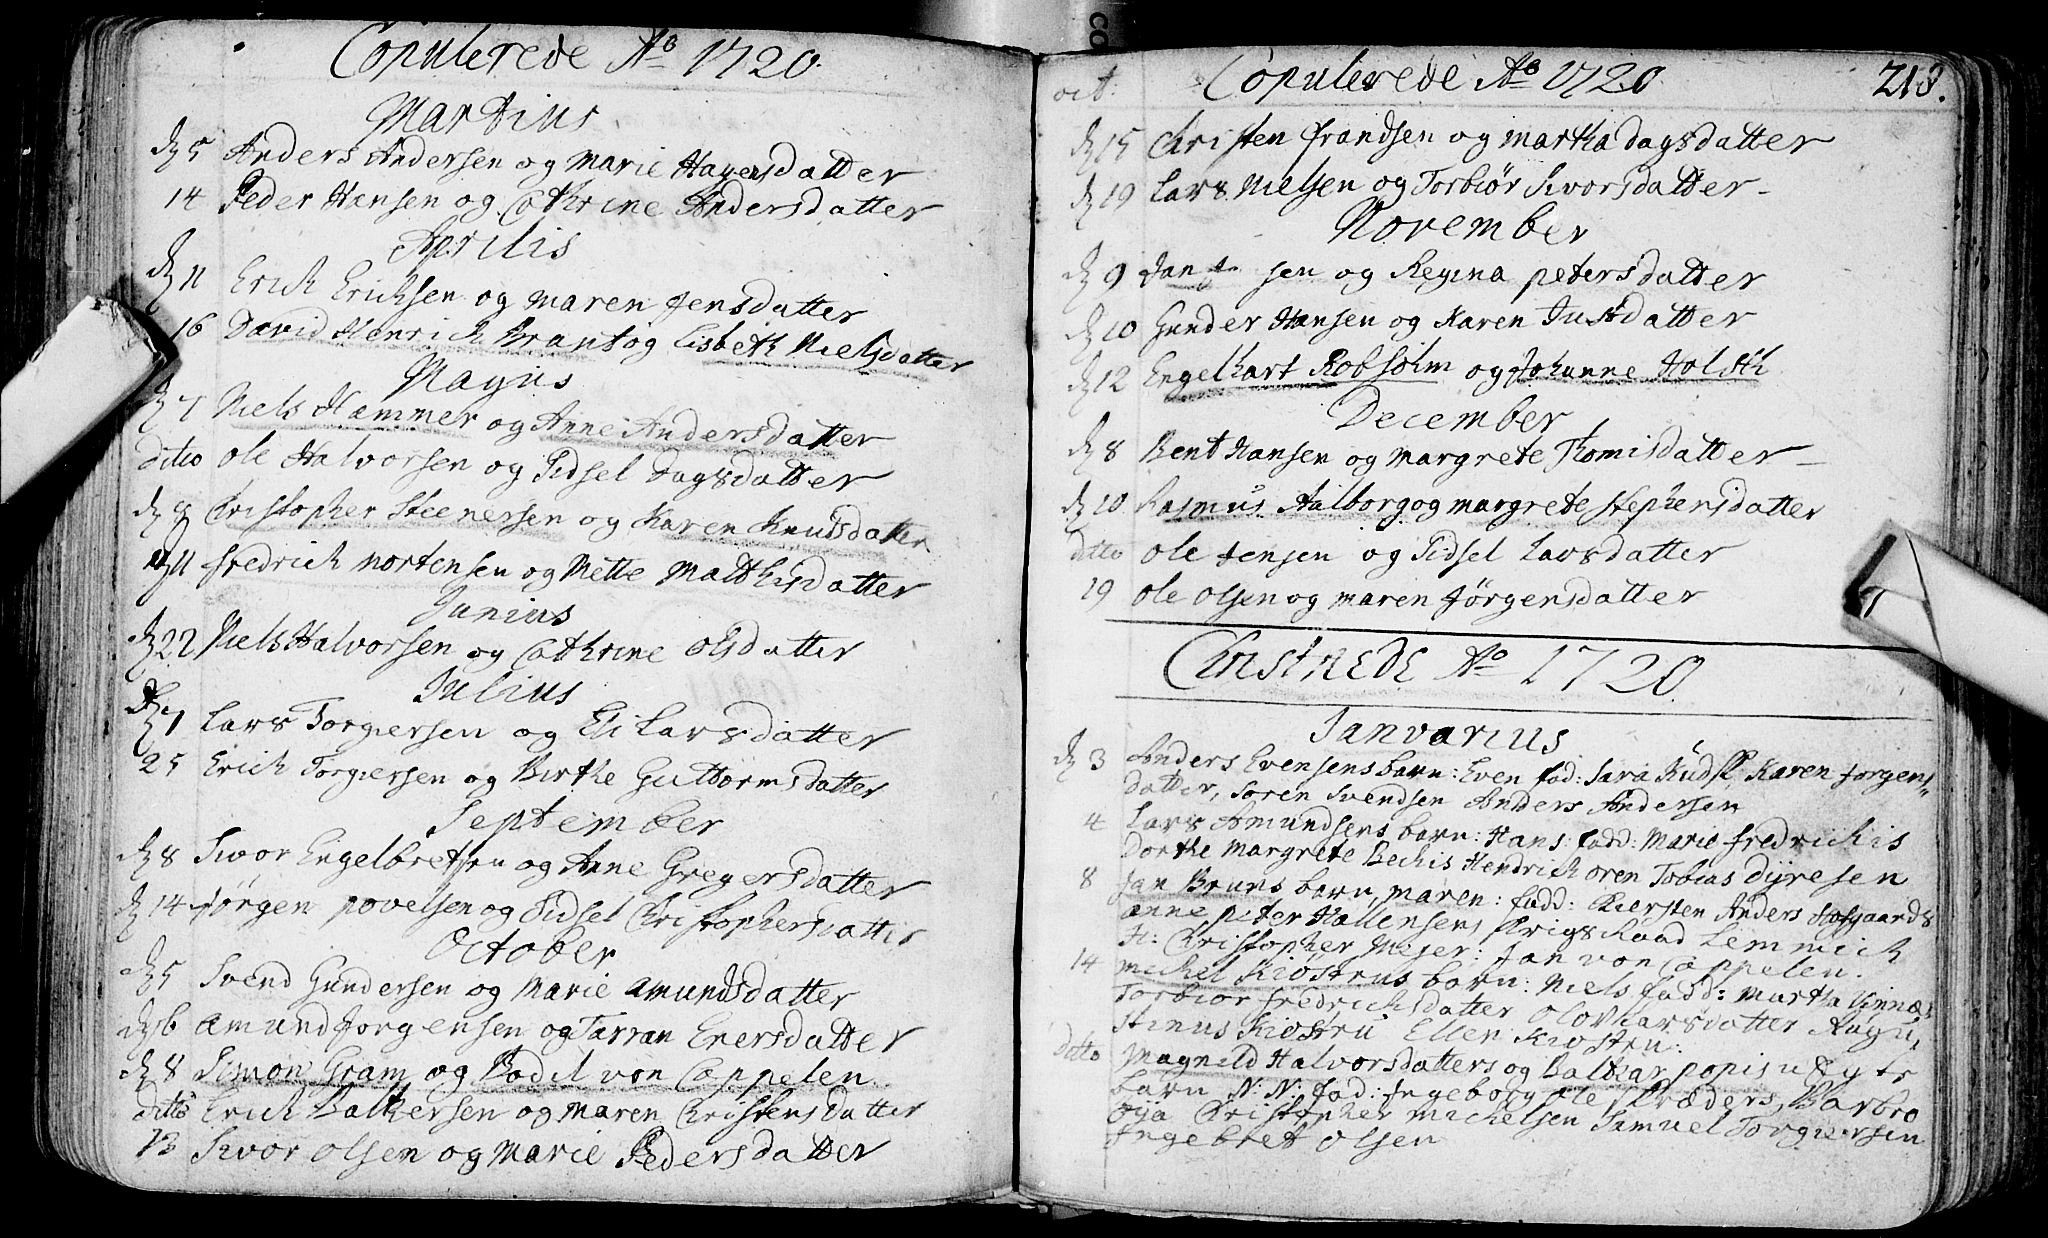 Copulerede Ao 1720
Martius
dn 5 Anders Andersen og Marie Hagensdatter
14 Peder Hansen og Cathrine Andersdatter
Aprilis
dn 11 Erich Erichsen og Maren Jensdatter
16 David Henrich Brant og Lisbeth Nielsdatter
Majus
dn 7 Niels Hammer og Anne Andersdatter
ditto ole Halvorsen og Sidsel Dagsdatter
dn 8 Christopher Steenersen og Karen Knudsdatter
dn 11 fredrich Mortensen og Mette Matthisdatter
Junius
dn 22 Niels Halvorsen og Cathrine olsdatter
Julius
dn 7 Lars Torgiersen og Eli Larsdatter
25 Erich Torgiersen og Birthe Guttormsdatter
September
dn 8 Sivor Engelbretsen og Anne Gregersdatter
dn 14 Jørgen povelsen og Sidsel Christophersdatter
October
dn 5 Svend Gundersen og Marie Amundsdatter
dn 6 Amund Jorgensen og Tarran Enersdatter
dn 8 Simon Gram og Bodil von Cappelen
ditto Erich Balthersen og Maren Christensdatter
13 Sivor olsen og Marie Pedersdatter
oct. Copulerede Ao 1720 213.
dn 15 Christen frandsen og martha dagsdatter
dn 19 Lars Nielsen og Torbiør Sivorsdatter
November
dn 9 Jan sen og Regina petersdatter
dn 10 Gunder Hansen og Karen Justdatter
dn 12 Engelhart Robsohm og Johanne Holsth
December
dn 8 Bent Hansen og Margrete Thomisdatter
dn 10 Rasmus Aalborg og margrete stephensdatter
ditto ole Jensen og Sidsel Larsdatter
19 ole olsen og maren Jørgensdatter
Christnede Ao 1720
Januarius
dn 3 Anders Evensens barn: Even fad: Sara Karen Jorgens
datter, Søren Svendsen Anders Andersen
4 Lars Amundsens barn: Hans: fadd: Marie fredrichis
Dorthe Margrete Bechis Hendrich oren Tobias Dyresen
8 Jan Bruns barn, maren: fadd: Kiersten Anders Hofgaards
anne peter Hallensens Krigs Raad Lemmich
H: Christopher Mejer: Jan von Cappelen.
14 michel Kiøstrus barn: Niels fadd: Martha
Torbiør fredrichsdatter Augu,
stinus Kiostru Ellen Kiostru:
ditto Magnild Halvorsdatters og Baltzar
barn N: N: fad: Ingeborg ole Præders, Barbro
Christopher Michelsen Samuel Torgiersen
Ingebret olsen